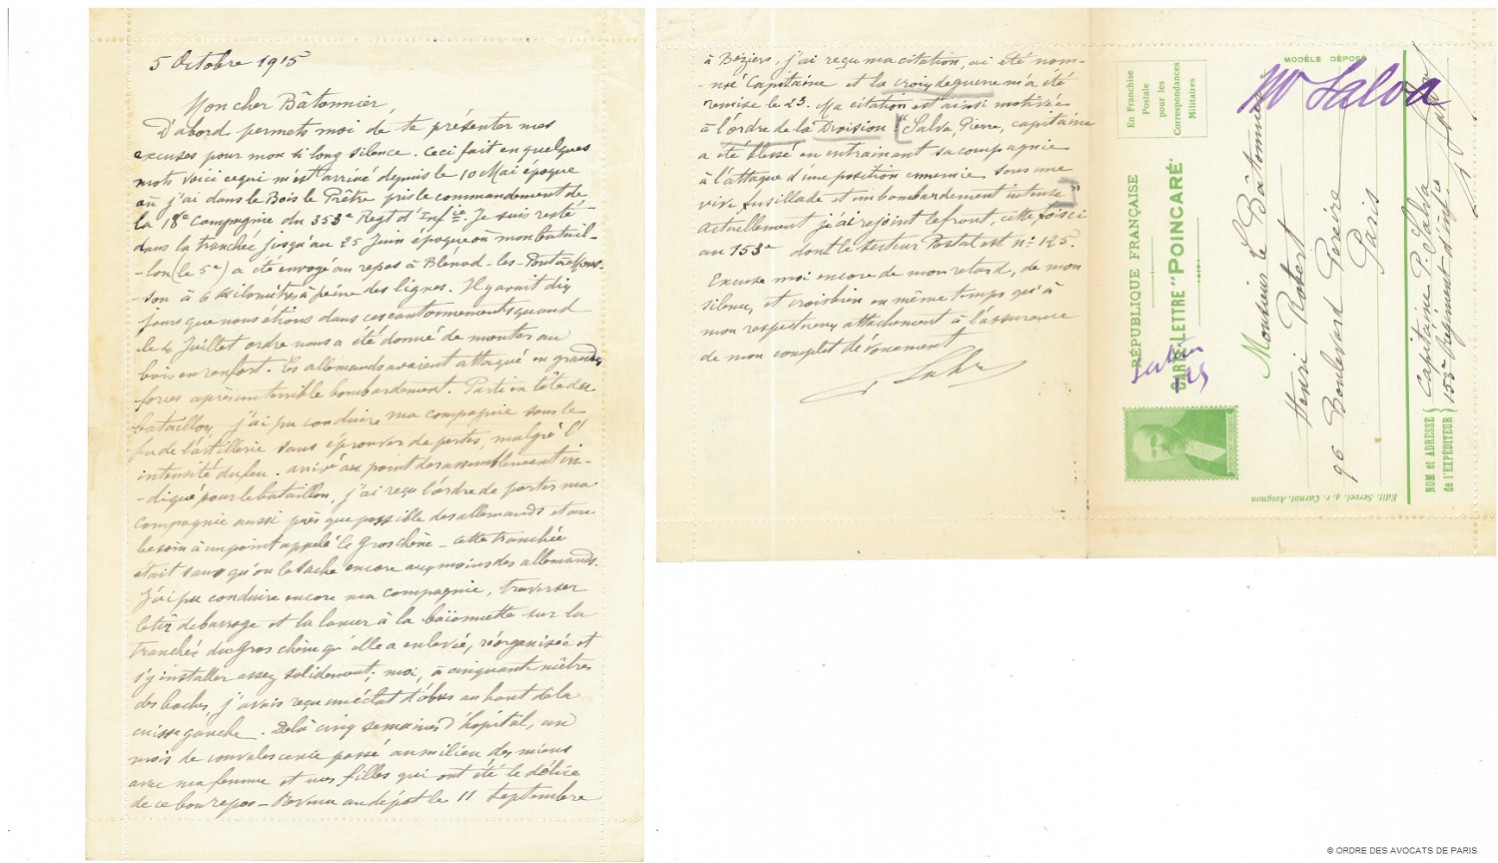 5 Octobre 1915
Mon cher Bâtonnier,
D'abord permets moi de te présenter mes
excuses pour mon si long silence. Ceci fait en quelques
mots voici ce qui m'est arrivé depuis le 10 Mai époque
où j'ai dans le Bois le Prêtre pris le commandement de
la 18e Compagnie du 353e Regt d'Infie. Je suis resté
dans la tranchée jusqu'au 25 Juin époque où mon batail-
-lon (le 5e) a été envoyé au repos à Blénod-les-Pont à Mous-
-son à 6 Kilomètres à peine des lignes. Il y avait dix
jours que nous étions dans ces cantonnements quand
le 4 Juillet ordre nous a été donné de monter au
bois en renfort. Les allemands avaient attaqué en grandes
forces après un terrible bombardement. Parti en tête du
bataillon j'ai pu conduire ma compagnie sous le
feu de l'artillerie sans éprouver de pertes, malgré l'
intensité du feu. arrivé au point de rassemblement in-
-diqué pour le bataillon, j'ai reçu l'ordre de porter ma
compagnie aussi près que possible des allemands et au
besoin à un point appelé le Gros chêne - cette tranchée
était sans qu'on le sache encore aux mains des allemands.
J'ai pu conduire encore ma compagnie, traverser
le tir de barrage et la lancer à la baïonnette sur la
tranchée du Gros chêne qu'elle a enlevée, réorganisée et
s'y installer assez solidement; moi, à cinquante mètres
des boches, j'avais reçu un éclat d'obus au haut de la
cuisse gauche. De là cinq semaines d'hôpital, un
mois de convalescence passé au milieu des miens
avec ma femme et mes filles qui ont été le délice
de ce bon repos - Revenu au dépôt le 11 Septembre
à Béziers, j'ai reçu ma citation, ai été nom-
mé Capitaine et la croix de guerre m'a été
remise le 23. Ma citation est ainsi motivée
à l'ordre de la Division "Salva Pierre, capitaine
a été blessé en entraînant sa compagnie
à l'attaque d'une position ennemie sous une
vive fusillade et un bombardement intense"
Actuellement j'ai rejoint le front, cette fois ci
au 153e dont le secteur Postal est no 125.
Excuse moi encore de mon retard, de mon
silence, et crois bien en même temps qu'à
mon respectueux attachement à l'assurance
de mon complet dévouement
Salva
MODÈLE DÉPOSÉ
En Franchise
Postale
pour les
Correspondances
Militaires
RÉPUBLIQUE FRANÇAISE
CARTE-LETTRE "POINCARÉ"
Me Salva
Monsieur le Bâtonnier
Henri Robert
96 Boulevard Pereire
Paris
NOM et ADRESSE
de l'EXPÉDITEUR
Capitaine P. Salva
153e Régiment d'infie
Edit. Servel, 4, r. Carnot, Avignon
© ORDRE DES AVOCATS DE PARIS